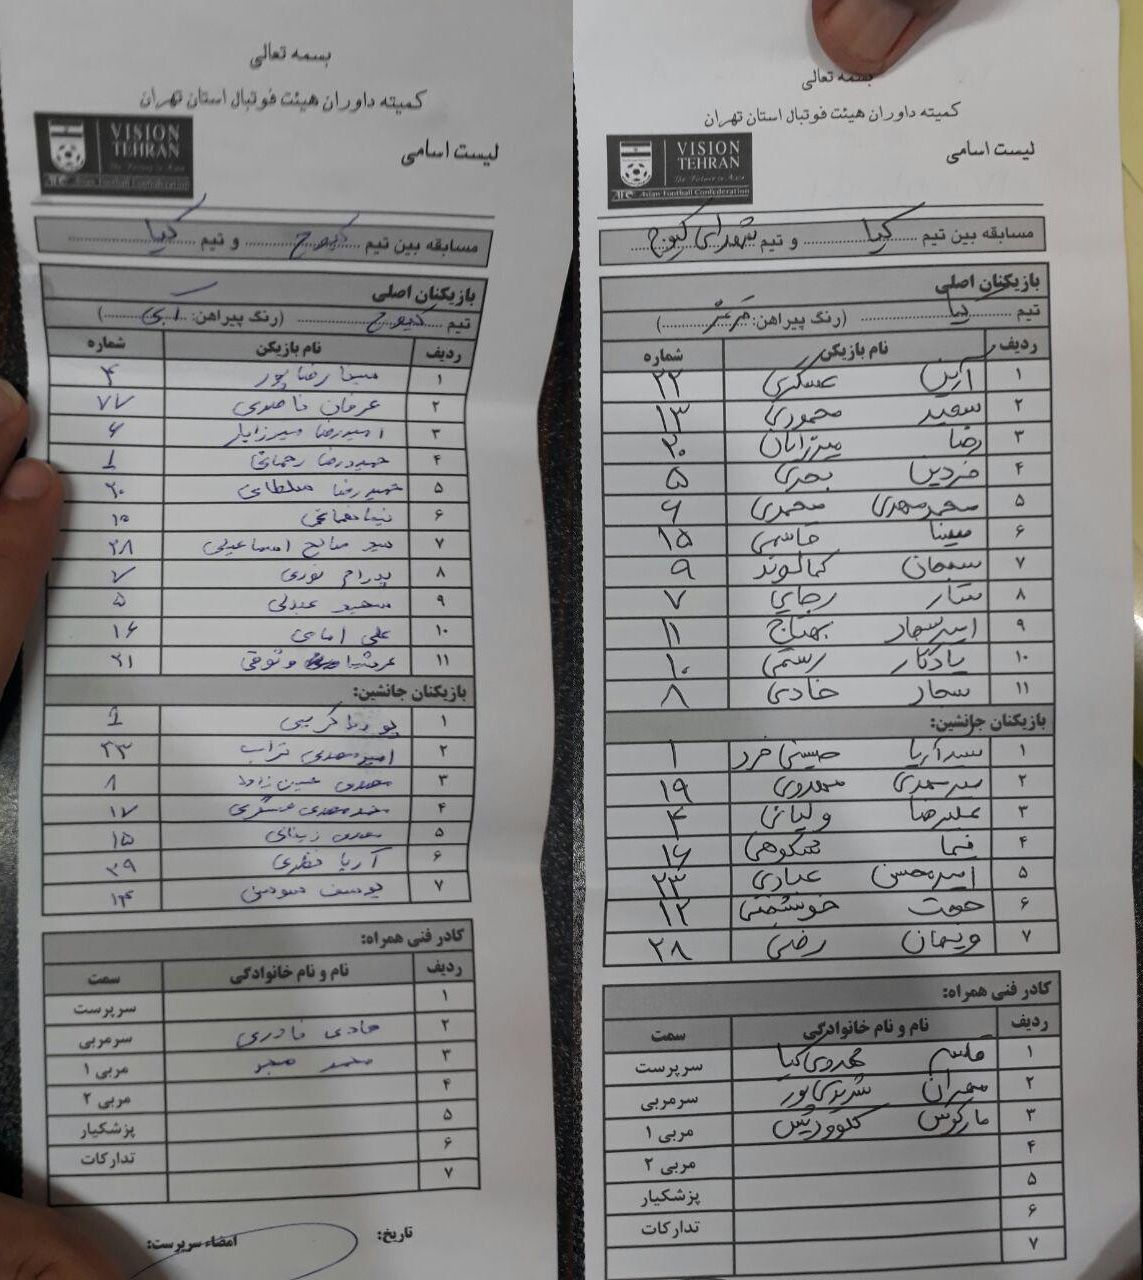 بسمه تعالی
کمیته داوران هیئت فوتبال استان تهران
VISION
TEHRAN
The Future is Asia
AFC Asian Football Confederation
لیست اسامی
مسابقه بین تیم کیوج و تیم کیا
بازیکنان اصلی
تیم کیوج (رنگ پیراهن: آبی)
ردیف نام بازیکن شماره
۱ رضاپور ۴
۲ عرفان ۷۷
۳ امیررضا ۶
۴ حمیدرضا رحمانی 1
۵ ۲۰
۶ ۱۰
۷ اسماعیلی ۳۸
۸ پدرام نوری ۷
۹ عبدلی ۵
۱۰ علی امامی ۱۶
۱۱ عرشیا وثوقی ۲۱
بازیکنان جانشین:
۱ پوریا کریمی 1
۲ امیرمهدی تراب ۳۳
۳ مهدی حسین زاده ۸
۴ محمدمهدی عسگری ۱۷
۵ مهدی ۱۵
۶ آریا نظری ۳۹
۷ یوسف مومنی ۱۴
کادر فنی همراه:
ردیف نام و نام خانوادگی سمت
۱ سرپرست
۲ هادی نادری سرمربی
۳ محمد مربی ۱
۴ مربی ۲
۵ پزشکیار
۶ تدارکات
۷
تاریخ: امضاء سرپرست:
بسمه تعالی
کمیته داوران هیئت فوتبال استان تهران
VISION
TEHRAN
The Future is Asia
AFC Asian Football Confederation
لیست اسامی
مسابقه بین تیم کیا و تیم شهدای کیوج
بازیکنان اصلی
تیم کیا (رنگ پیراهن: قرمز)
ردیف نام بازیکن شماره
۱ آرین عسکری ۲۲
۲ سعید محمودی ۱۳
۳ رضا میرزائی ۲۰
۴ فردین بحری ۵
۵ محمدمهدی محمدی ۶
۶ مبینا قاسمی ۱۵
۷ سبحان کمالوند ۹
۸ ستار رجایی ۷
۹ امیرسجاد بهتاج ۱۱
۱۰ یادگار رستمی ۱۰
۱۱ سجاد خادی ۸
بازیکنان جانشین:
۱ سیدآریا حسینی خرد ۱
۲ مهدوی ۱۹
۳ علیرضا ولیانی ۴
۴ نیما شکوهی ۱۶
۵ امیرمحسن عبادی ۲۳
۶ حجت خوشبختی ۱۲
۷ پیمان رضی ۲۸
کادر فنی همراه:
ردیف نام و نام خانوادگی سمت
۱ قاسم مهدوی کیا سرپرست
۲ مهران شریدی پور سرمربی
۳ مارکوس کلوودیس مربی ۱
۴ مربی ۲
۵ پزشکیار
۶ تدارکات
۷